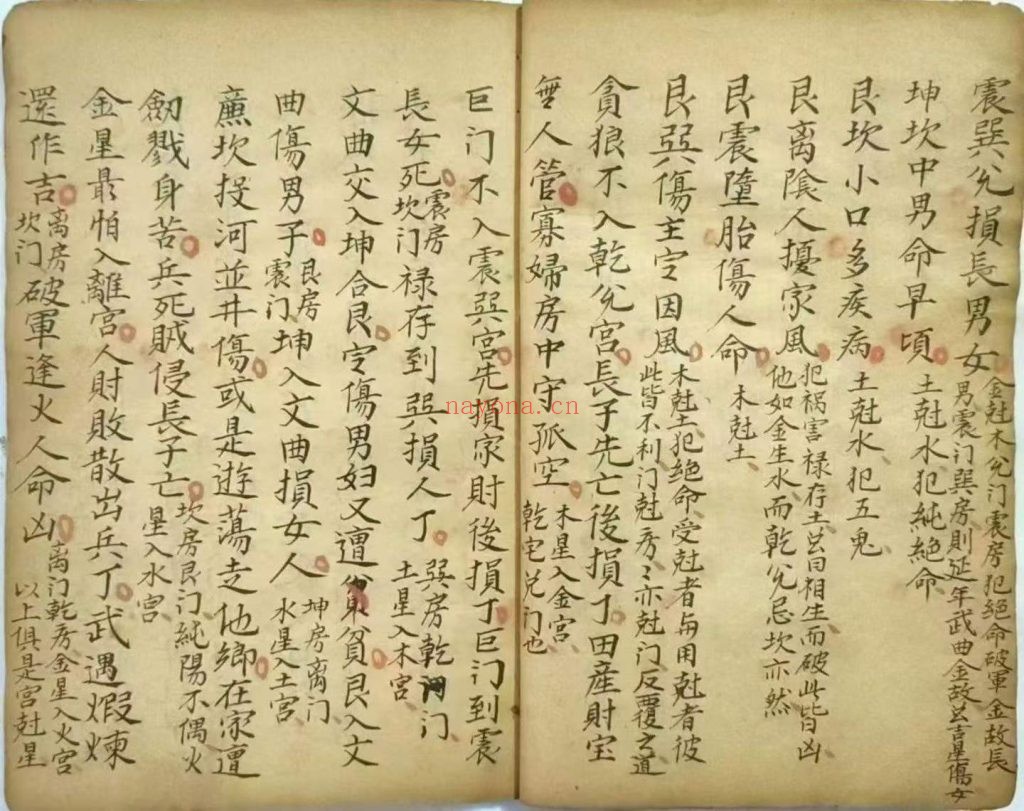 震巽兌損長男女 金尅木兌门震房犯絕命破軍金故長男震门巽房則延年武曲金故吉星傷女
坤坎中男命早頃 土尅水犯純絕命
艮坎小口多疾病 土尅水犯五鬼
艮离陰人擾家風 犯祸害禄存土曰相生而破此皆凶他如金生水而乾兌忌坎亦然
艮震墮胎傷人命 木尅土
艮巽傷主定因風 木尅土犯絕命受尅者毋用尅者彼此皆不利门尅房房亦尅门反覆之道
貪狼不入乾兌宮長子先亡後損丁田産財宝
無人管寡婦房中守孤空 木星入金宮乾宅兌门也
巨门不入震巽宮先損家財後損丁巨门到震
長女死 震房坎门 禄存到巽損人丁 巽房乾门土星入木宮
文曲交入坤合艮定傷男妇又遭貧艮入文
曲傷男子 艮房震门 坤入文曲損女人 坤房离门水星入土宮
廉坎投河並井傷或是遊蕩走他鄉在家遭
劒戮身苦兵死贼侵長子亡 坎房艮门純陽不偶火星入水宮
金星最怕入離宮人財敗散出兵丁武遇煅煉
還作吉 离房坎门 破軍逢火人命凶 离门乾房金星入火宮以上俱是宮尅星
nayona.cn